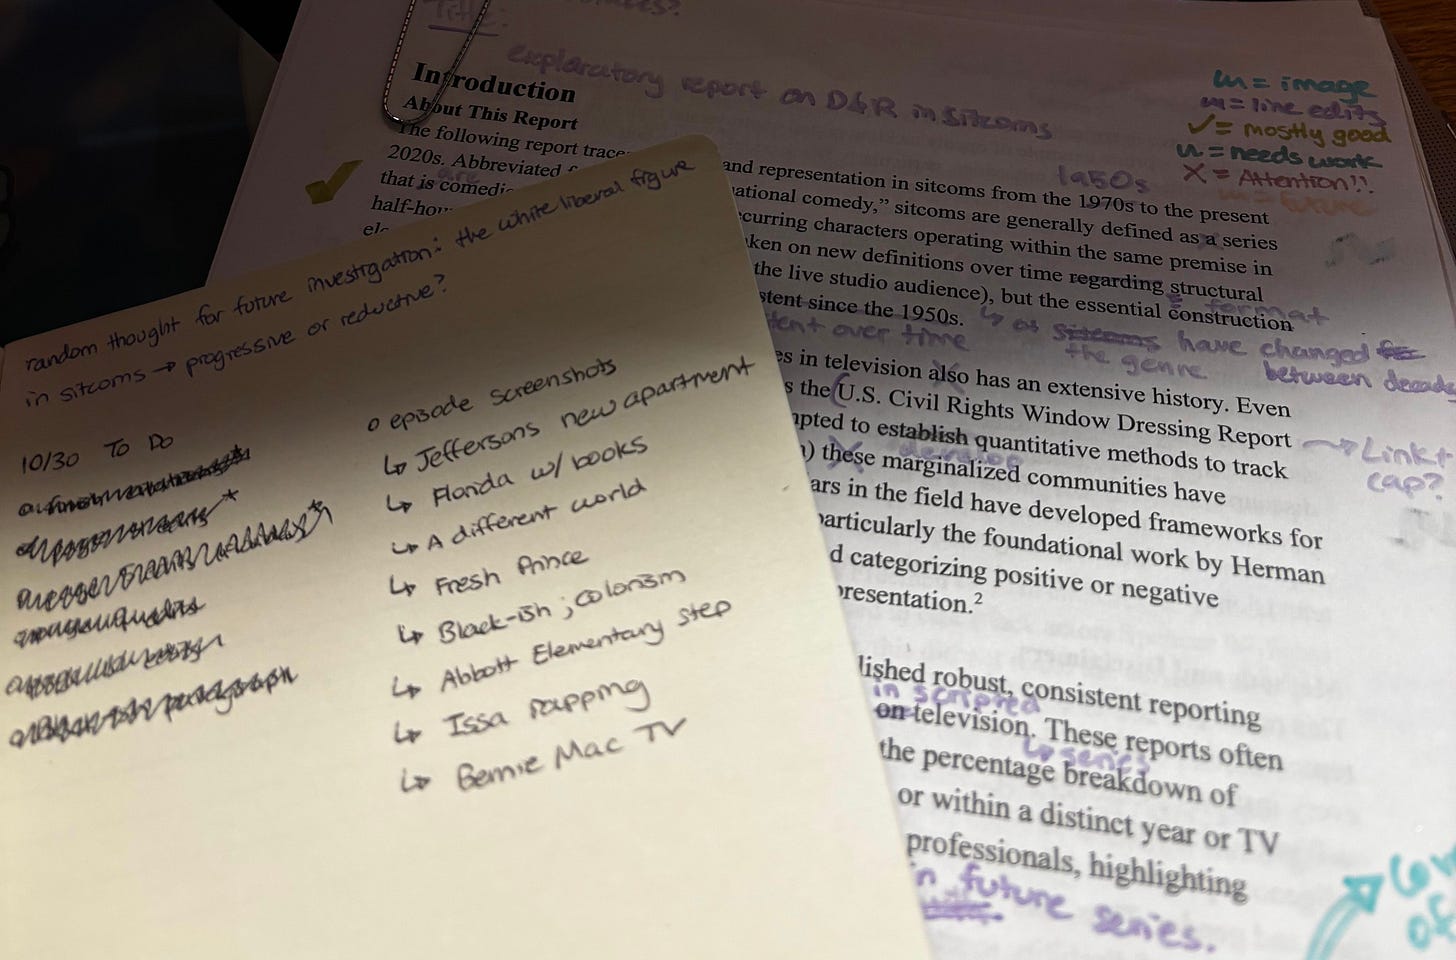 Title:
exploratory report on D&R in sitcoms
= image
= line edits
✓ = mostly good
= needs work
X = Attention!!
= future
Introduction
About This Report
The following report trace
and representation in sitcoms from the 1970s to the present
1950s
2020s. Abbreviated
ational comedy,” sitcoms are generally defined as a series
are
that is comedic
curring characters operating within the same premise in
half-hour
ken on new definitions over time regarding structural
the live studio audience), but the essential construction
format
stent since the 1950s.
tent over time
↳ as sitcoms have changed
the genre
between decades
es in television also has an extensive history. Even
s the U.S. Civil Rights Window Dressing Report
Link + cap?
mpted to establish quantitative methods to track
develop
) these marginalized communities have
ars in the field have developed frameworks for
particularly the foundational work by Herman
d categorizing positive or negative
presentation.²
lished robust, consistent reporting
in scripted
on television. These reports often
↳ series
the percentage breakdown of
or within a distinct year or TV
professionals, highlighting
in future series.
random thought for future investigation: the white liberal figure
in sitcoms → progressive or reductive?
10/30 To Do
o episode screenshots
↳ Jeffersons new apartment
↳ Florida w/ books
↳ A different world
↳ Fresh Prince
↳ Black-ish; colorism
↳ Abbott Elementary step
↳ Issa rapping
↳ Bernie Mac TV